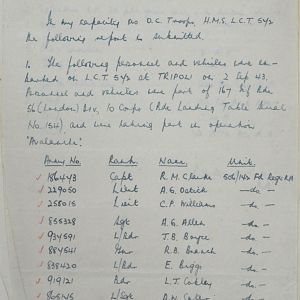 In my capacity as O.C. Troops, H.M.S. L.C.T. 543
the following report is submitted.
1. The following personnel and vehicles were em-
barked on L.C.T. 543 at TRIPOLI on 2 Sep 43.
Personnel and vehicles were part of 167 Inf Bde
56 (London) Div, 10 Corps (Bde Landing Table Serial
No. 154), and were taking part in operation
"Avalanche".
Army No. Rank. Name. Unit.
186443 Capt R.M. Clarke Fd Regt RA
229050 Lieut A.G. — do —
258015 Lieut C.P. Williams — do —
855328 Sgt A.G. Allen — do —
934591 L/Bdr T.B. — do —
884541 Gnr R.B. Branch — do —
838420 L/Bdr E. Biggs — do —
919121 Bdr L.T. — do —
L/Sgt — do —